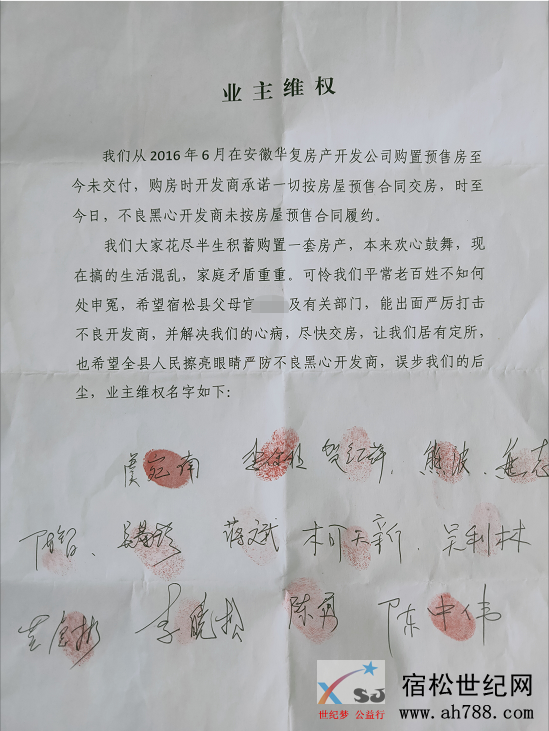 业主维权
我们从2016年6月在安徽华复房产开发公司购置预售房至
今未交付，购房时开发商承诺一切按房屋预售合同交房，时至
今日，不良黑心开发商未按房屋预售合同履约。
我们大家花尽半生积蓄购置一套房产，本来欢心鼓舞，现
在搞的生活混乱，家庭矛盾重重。可怜我们平常老百姓不知何
处申冤，希望宿松县父母官及有关部门，能出面严厉打击
不良开发商，并解决我们的心病，尽快交房，让我们居有定所，
也希望全县人民擦亮眼睛严防不良黑心开发商，误步我们的后
尘，业主维权名字如下：
贺江萍 熊波
蒋文斌 柯天新 吴利林
李晓松 陈勇 陈中伟
XSJ
世纪梦 公益行
宿松世纪网
www.ah788.com